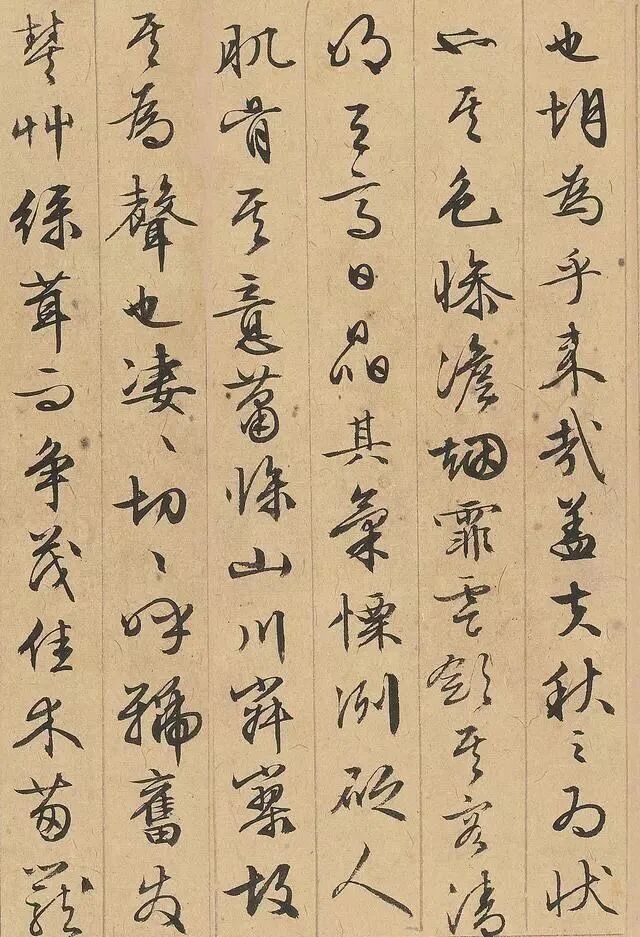 也胡為乎来哉盖夫秋之為状
也其色惨澹烟霏雲斂其容清
明天高日晶其氣慄冽砭人
肌骨其意蕭條山川寂寥故
其為聲也凄〻切〻呼號奮發
豐草綠茸而爭茂佳木葱蘢